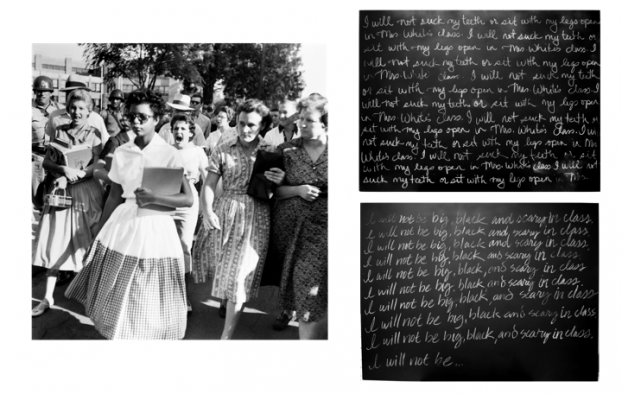 I will not suck my teeth or sit with my legs open
in Mrs. White's class. I will not suck my teeth or
sit with my legs open in Mrs White's class. I
will not suck my teeth or sit with my legs open
in Mrs. White class. I will not suck my teeth
or sit with my legs open in Mrs. White's class. I
will not suck my teeth or sit with my legs open
in Mrs. White's class. I will not suck my teeth or
sit with my legs open in Mrs. White's class. I will
not suck my teeth or sit with my legs open in Mrs
White's class. I will not suck my teeth or sit
with my legs open in Mrs. White's class I will not
suck my teeth or sit with my legs open in Mrs.
I will not be big, black and scary in class.
I will not be big, black, and, scary in class.
I will not be big, black, and scary in class.
I will not be big, black and scary in class.
I will not be big, black, and scary in class
I will not be big, black and scary in class.
I will not be big, black, and scary in class
I will not be big, black, and scary in class.
I will not be big, black, and scary in class
I will not be big, black, and scary in class.
I will not be...